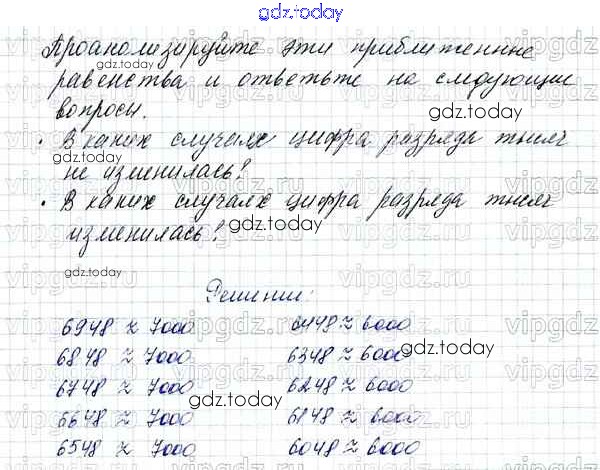 gdz.today
Проанализируйте эти приближенные
равенства и ответьте на следующие
вопросы.
gdz.today
· В каких случаях цифра разряда тысяч
не изменилась?
gdz.today
· В каких случаях цифра разряда тысяч
изменилась?
gdz.today
vipgdz.ru
Решение:
6948 ≈ 7000 6448 ≈ 6000
6848 ≈ 7000 6348 ≈ 6000
gdz.today
6748 ≈ 7000 6248 ≈ 6000
gdz.today
6648 ≈ 7000 6148 ≈ 6000
6548 ≈ 7000 6048 ≈ 6000
gdz.today